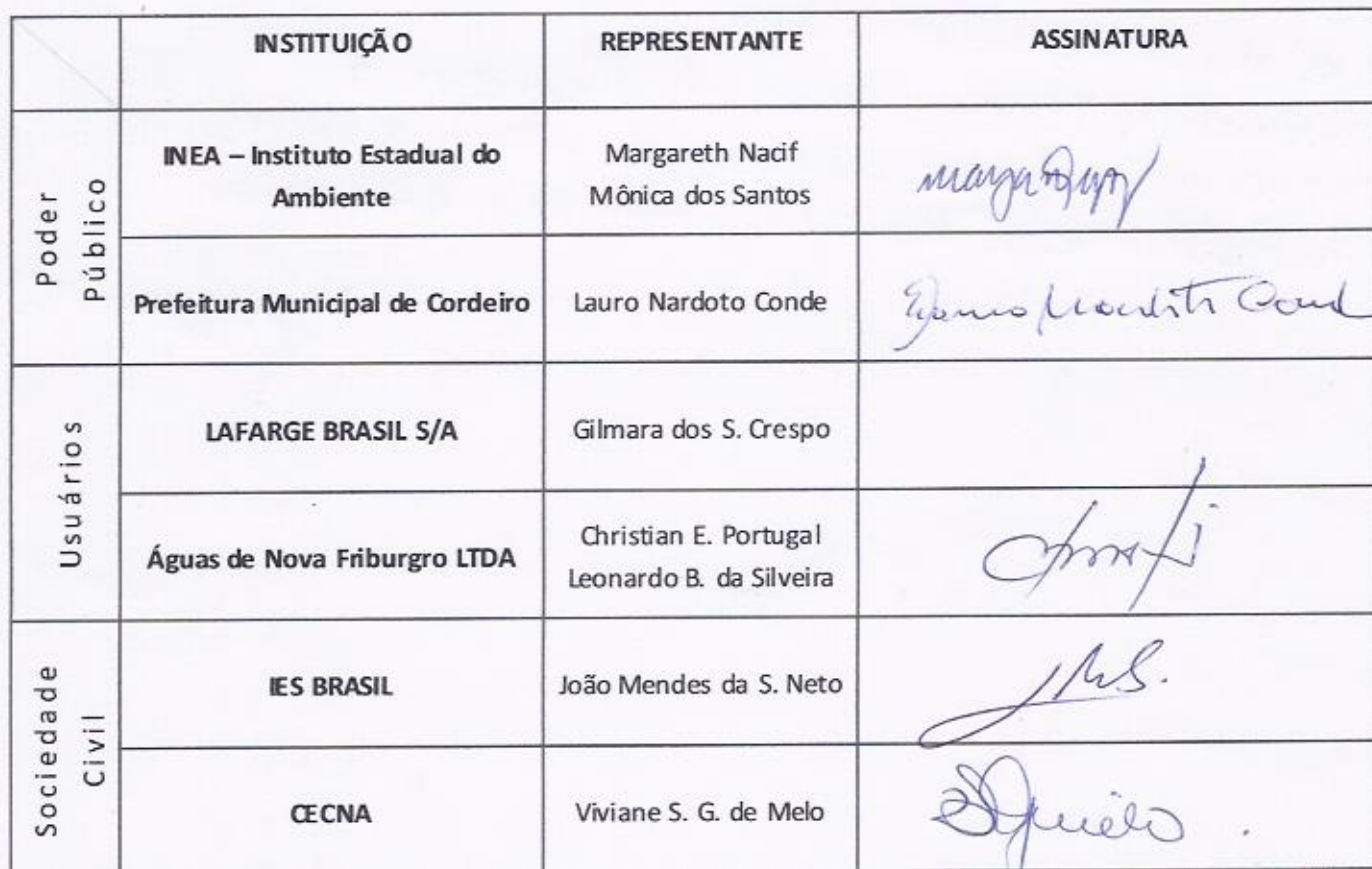 INSTITUIÇÃO REPRESENTANTE ASSINATURA
Poder
Público
INEA – Instituto Estadual do
Ambiente
Margareth Nacif
Mônica dos Santos
Prefeitura Municipal de Cordeiro
Lauro Nardoto Conde
Usuários
LAFARGE BRASIL S/A
Gilmara dos S. Crespo
Águas de Nova Friburgro LTDA
Christian E. Portugal
Leonardo B. da Silveira
Sociedade
Civil
IES BRASIL
João Mendes da S. Neto
CECNA
Viviane S. G. de Melo